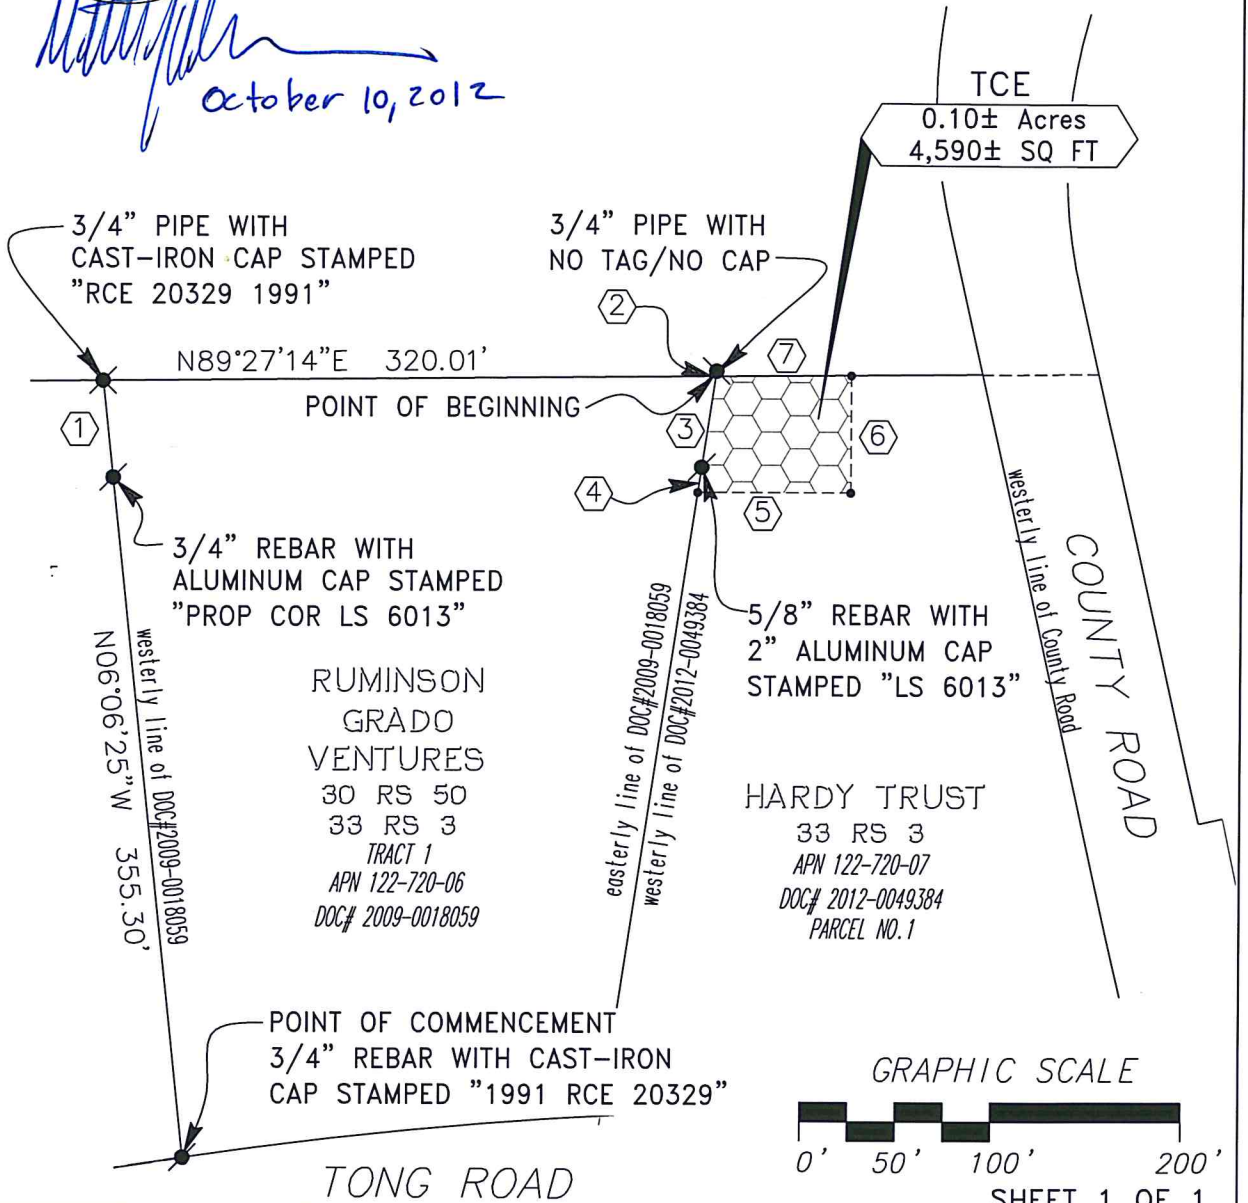 October 10, 2012
TCE
0.10± Acres
4,590± SQ FT
3/4" PIPE WITH
CAST-IRON CAP STAMPED
"RCE 20329 1991"
3/4" PIPE WITH
NO TAG/NO CAP
2
N89°27'14"E 320.01'
7
POINT OF BEGINNING
1
3
6
4
5
3/4" REBAR WITH
ALUMINUM CAP STAMPED
"PROP COR LS 6013"
5/8" REBAR WITH
2" ALUMINUM CAP
STAMPED "LS 6013"
westerly line of DOC#2009-0018059
N06°06'25"W 355.30'
RUMINSON
GRADO
VENTURES
30 RS 50
33 RS 3
TRACT 1
APN 122-720-06
DOC# 2009-0018059
easterly line of DOC#2009-0018059
westerly line of DOC#2012-0049384
HARDY TRUST
33 RS 3
APN 122-720-07
DOC# 2012-0049384
PARCEL NO.1
westerly line of County Road
COUNTY ROAD
POINT OF COMMENCEMENT
3/4" REBAR WITH CAST-IRON
CAP STAMPED "1991 RCE 20329"
TONG ROAD
GRAPHIC SCALE
0' 50' 100' 200'
SHEET 1 OF 1